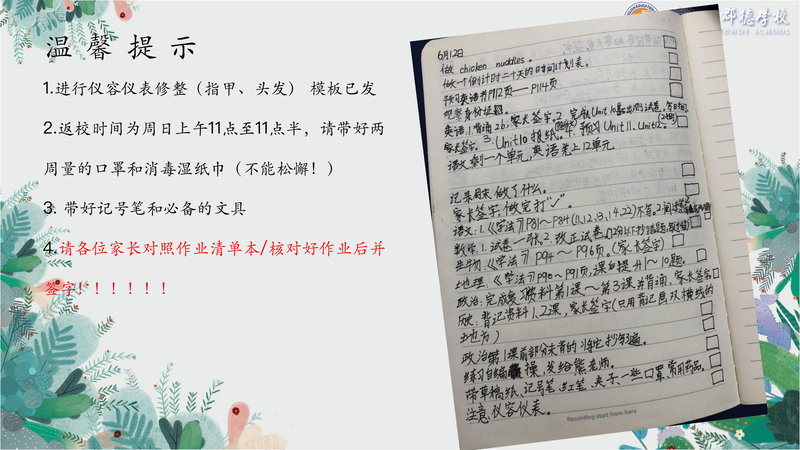 温馨提示
1.进行仪容仪表修整（指甲、头发） 模板已发
2.返校时间为周日上午11点至11点半，请带好两
周量的口罩和消毒湿纸巾（不能松懈！）
3. 带好记号笔和必备的文具
4.请各位家长对照作业清单本/核对好作业后并
签字！！！！！！
邓德学校
6月12日
做 chicken nuddles。
做一个倒计时二十天的时间计划表。
预习英语书P112页——P114页
观察身份证。
英语:1.背诵2b,家长签字。2.完成Unit10
家长签字。3.Unit10报纸。 预习Unit11、Unit12。
语文剩一个单元，英语先上12单元
记录周末做了什么。
家长签字,做完打"✓"。
语文:1.《学法》P81~P84(11,12,13,14,22)不写。2.
数学:1.试卷一张。2.改正试卷
生物:《学法》P94~P96页。(家长签字)
地理:《学法》P90~P91页,课 提升1~10题。
政治:完成复习资料第1课~第3课并背诵，家长签字
历史:背记资料1.2课，家长签字(只用背记画双横线的
地方)
政治第1课前部分未背的 抄3遍。
练习自编操,发给熊老师。
带草稿纸、记号笔、红笔、夹子、一些口罩,常用药品。
注意仪容仪表。
Recording start from here